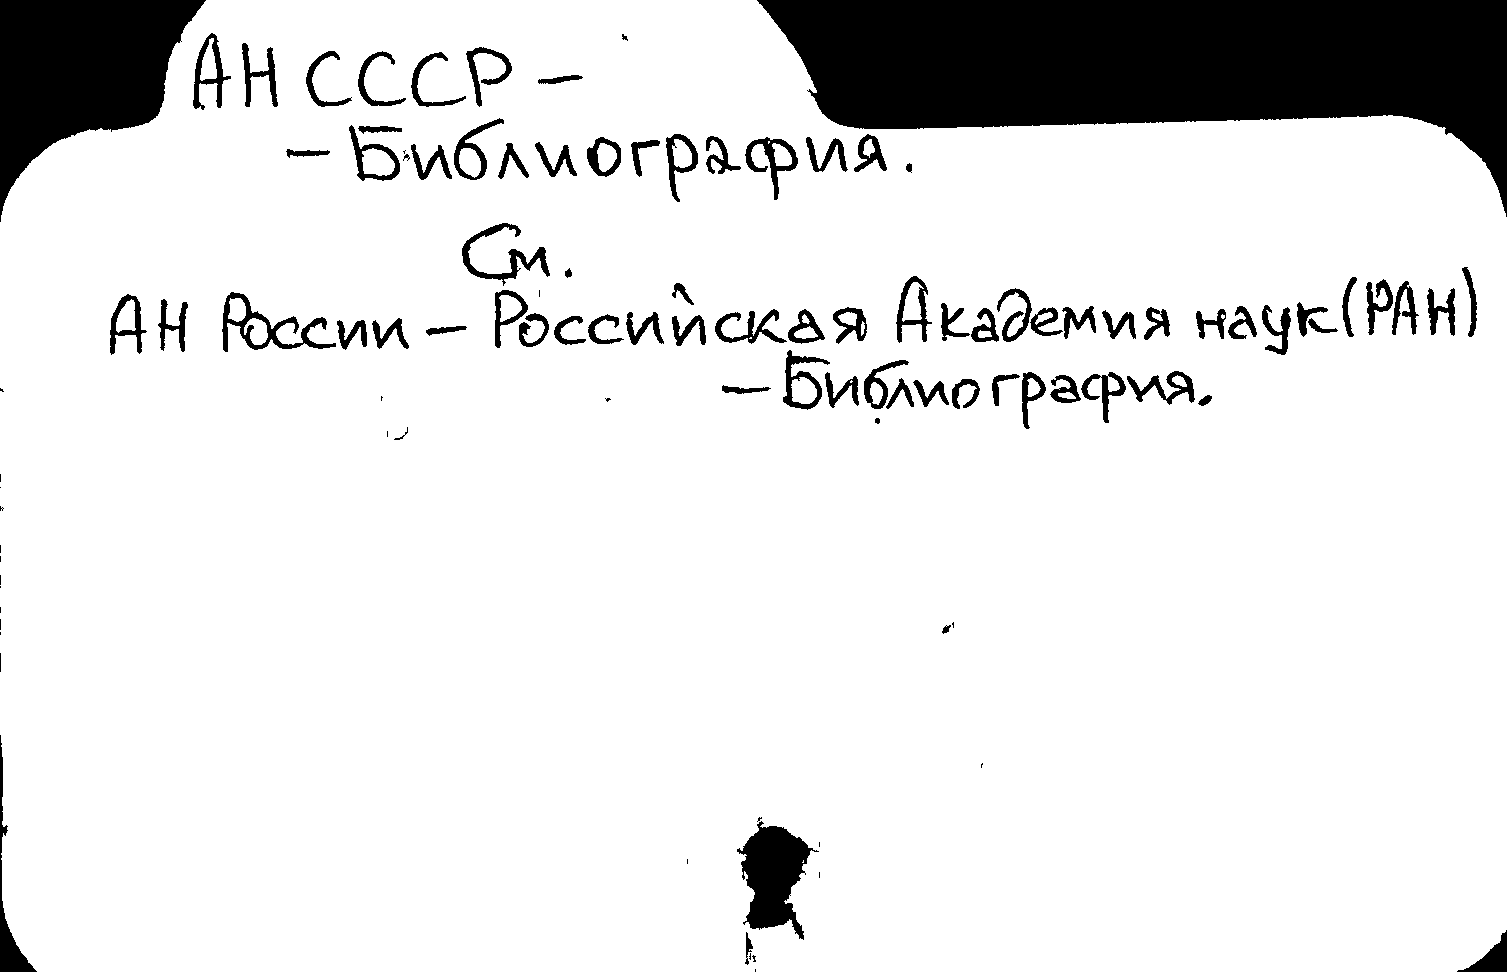 АН СССР –
– Библиография.
См.
АН России – Российская Академия наук (РАН)
– Библиография.